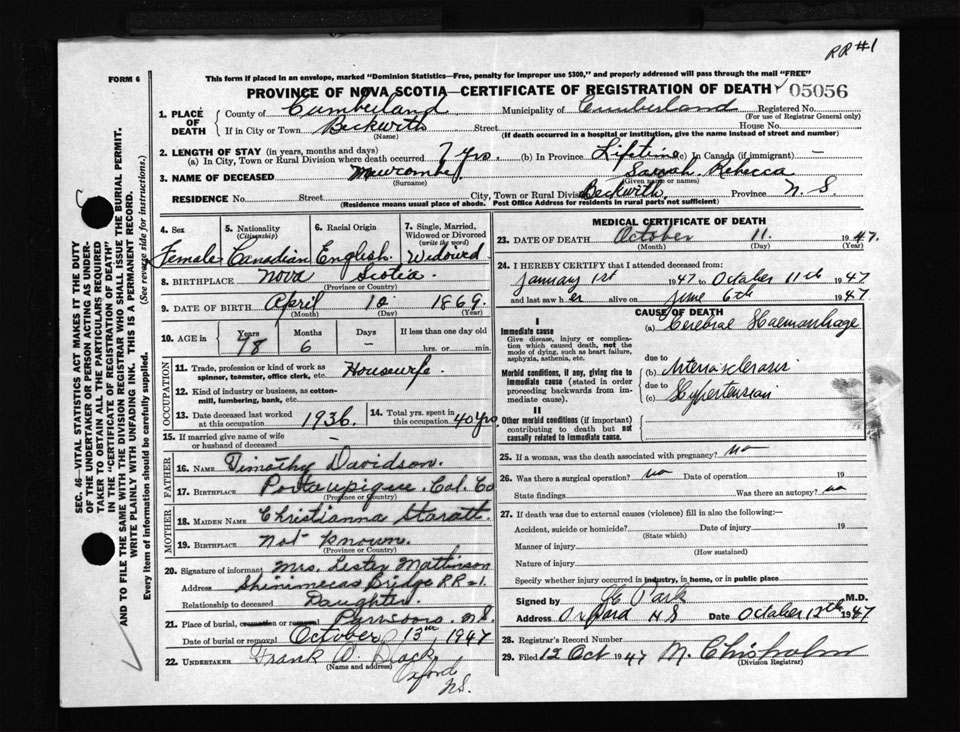 RR#1
FORM 6
This form if placed in an envelope, marked "Dominion Statistics—Free, penalty for improper use $300," and properly addressed will pass through the mail "FREE"
PROVINCE OF NOVA SCOTIA—CERTIFICATE OF REGISTRATION OF DEATH 05056
1. PLACE OF DEATH County of Cumberland Municipality of Cumberland Registered No.
(For use of Registrar General only)
If in City or Town Beckwith Street House No.
(Name) (If death occurred in a hospital or institution, give the name instead of street and number)
2. LENGTH OF STAY (in years, months and days)
(a) In City, Town or Rural Division where death occurred 7 yrs. (b) In Province Lifetime (c) In Canada (if immigrant) —
3. NAME OF DECEASED Newcombe Sarah Rebecca
(Surname) (Given name or names)
RESIDENCE No. Street City, Town or Rural Division Beckwith Province N. S.
(Residence means usual place of abode. Post Office Address for residents in rural parts not sufficient)
4. Sex 5. Nationality (Citizenship) 6. Racial Origin 7. Single, Married, Widowed or Divorced (write the word)
Female Canadian English Widowed
8. BIRTHPLACE Nova Scotia
(Province or Country)
9. DATE OF BIRTH April 12 1869
(Month) (Day) (Year)
10. AGE in Years Months Days If less than one day old
78 6 — hrs. or min.
OCCUPATION
11. Trade, profession or kind of work as spinner, teamster, office clerk, etc. Housewife
12. Kind of industry or business, as cotton-mill, lumbering, bank, etc.
13. Date deceased last worked at this occupation 1936. 14. Total yrs. spent in this occupation 40 yrs
15. If married give name of wife or husband of deceased —
FATHER
16. NAME Timothy Davidson.
17. BIRTHPLACE Portaupique. Col. Co
(Province or Country)
MOTHER
18. MAIDEN NAME Christianna Staratt.
19. BIRTHPLACE Not Known.
(Province or Country)
20. Signature of informant Mrs. Lester Mattinson
Address Shinimecas Bridge RR=1.
Relationship to deceased Daughter.
21. Place of burial, cremation or removal Parrsboro. N.S.
Date of burial or removal October 13th, 1947
22. UNDERTAKER Frank W. Black
(Name and address) Oxford
N.S.
MEDICAL CERTIFICATE OF DEATH
23. DATE OF DEATH October 11. 1947.
(Month) (Day) (Year)
24. I HEREBY CERTIFY that I attended deceased from:
January 1st 1947 to October 11th 1947
and last saw her alive on June 6th 1947
CAUSE OF DEATH
I
Immediate cause
Give disease, injury or complication which caused death, not the mode of dying, such as heart failure, asphyxia, asthenia, etc.
(a) Cerebral Haemorrhage
due to
Morbid conditions, if any, giving rise to immediate cause (stated in order proceeding backwards from immediate cause).
(b) Arteriosclerosis
due to
(c) Hypertension
II
Other morbid conditions (if important) contributing to death but not causally related to immediate cause.
25. If a woman, was the death associated with pregnancy? no
26. Was there a surgical operation? no Date of operation 19
State findings Was there an autopsy? no
27. If death was due to external causes (violence) fill in also the following:—
Accident, suicide or homicide? Date of injury 19
(State which)
Manner of injury
(How sustained)
Nature of injury
Specify whether injury occurred in industry, in home, or in public place
Signed by Park M.D.
Address Oxford N S Date October 12th 1947
28. Registrar's Record Number
29. Filed 12 Oct 1947 M. Chisholm
(Division Registrar)
SEC. 46—VITAL STATISTICS ACT MAKES IT THE DUTY
OF THE UNDERTAKER OR PERSON ACTING AS UNDER-
TAKER TO OBTAIN ALL THE PARTICULARS REQUIRED
IN THE "CERTIFICATE OF REGISTRATION OF DEATH"
AND TO FILE THE SAME WITH THE DIVISION REGISTRAR WHO SHALL ISSUE THE BURIAL PERMIT.
WRITE PLAINLY WITH UNFADING INK. THIS IS A PERMANENT RECORD.
Every item of information should be carefully supplied. (See reverse side for instructions.)